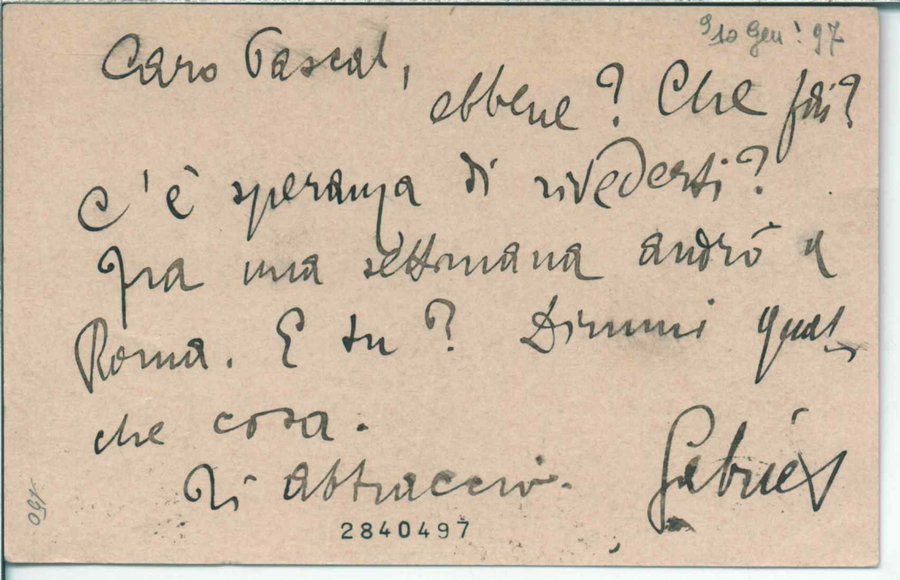 10 Gen! 97
Caro Pascal,
ebbene? Che fai?
C'è speranza di rivederti?
Fra una settimana andrò a
Roma. E tu? Dimmi qual-
che cosa.
Ti abbraccio.
Gabriel
2840497
190